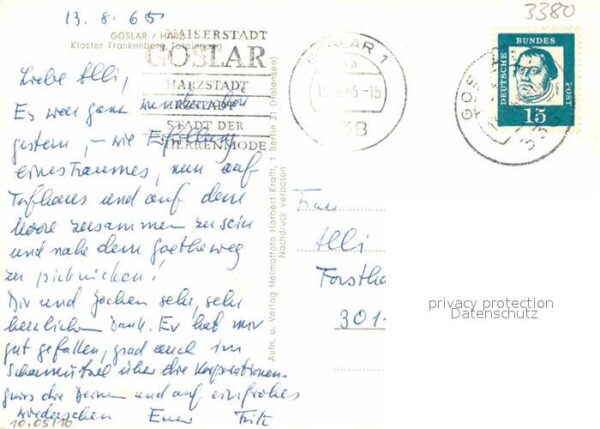 13.8.65
3380
GOSLAR / HARZ
Kloster Frankenberg, Torbogen
KAISERSTADT
GOSLAR
HARZSTADT
STADT DER
HERRENMODE
GOSLAR 1
13. 65-15
338
DEUTSCHE BUNDESPOST
15
Liebe Alli,
Es war ganz wunderschön
gestern, - wie Erfüllung
eines Traumes, nun auf
Torfhaus und auf dem
Moore zusammen zu sein
und nahe dem Goetheweg
zu picknicken!
Dir und Jochen sehr, sehr
herzlichen Dank. Es hat mir
gut gefallen, grad auch im
über die Korporationen.
die und auf ein frohes
Wiedersehen Euer Fritz
10.05/16
Aufn. u. Verlag Heimatfoto Herbert Krafft, 1 Berlin 31 (Halensee)
Nachdruck verboten
Frau
Alli
Forstha
301
privacy protection
Datenschutz